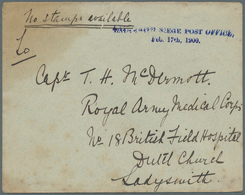 No stamps available
LADYSMITH SIEGE POST OFFICE,
Feb. 17th, 1900.
To
Capt T. H. McDermott
Royal Army Medical Corps
No 18 British Field Hospital
Dutch Church
Ladysmith